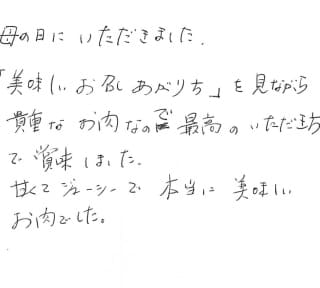 母の日に いただきました.
「美味しいお召しあがり方」を見ながら
貴重な お肉なので 最高の いただき方
で 賞味しました.
甘くて ジューシーで 本当に 美味しい
お肉でした。